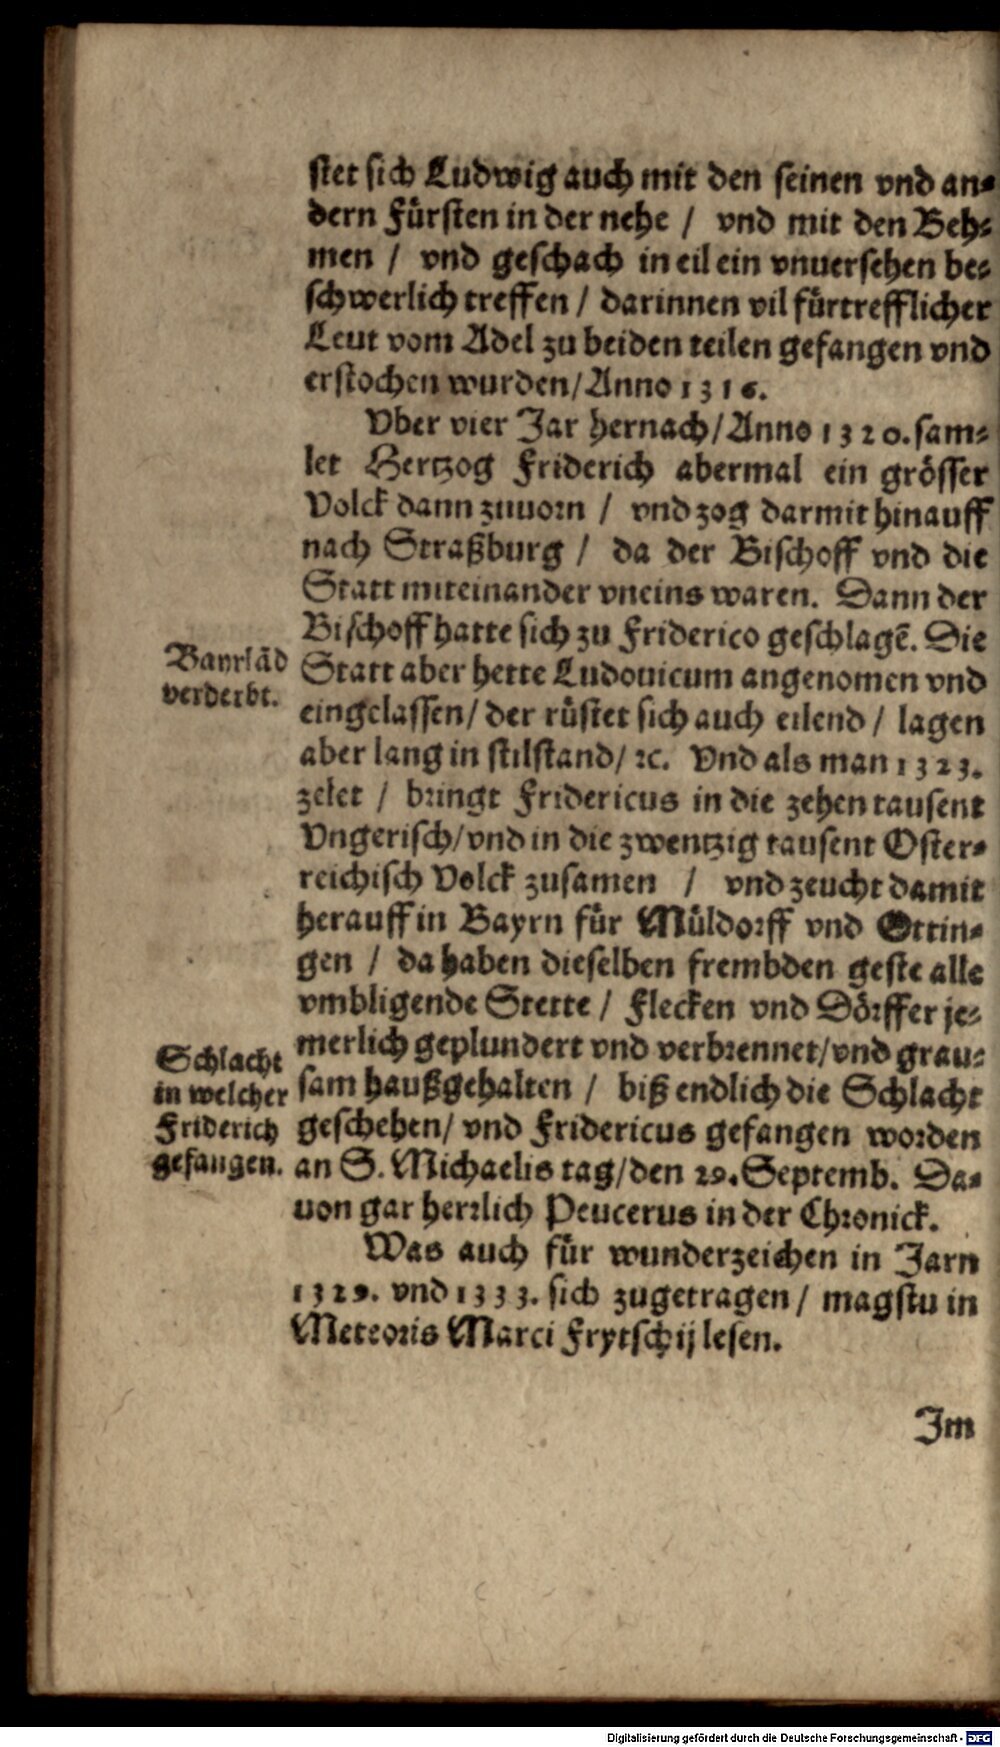 stet sich Ludwig auch mit den seinen vnd an⸗
dern Fürsten in der nehe / vnd mit den Beh⸗
men / vnd geschach in eil ein vnuersehen be⸗
schwerlich treffen / darinnen vil fürtrefflicher
Leut vom Adel zu beiden teilen gefangen vnd
erstochen wurden/Anno 1316.
Vber vier Jar hernach/Anno 1320. sam⸗
let Hertzog Friderich abermal ein grösser
Volck dann zuuorn / vnd zog darmit hinauff
nach Straßburg / da der Bischoff vnd die
Statt miteinander vneins waren. Dann der
Bischoff hatte sich zu Friderico geschlagē. Die
Statt aber hette Ludouicum angenomen vnd
eingelassen/ der rüstet sich auch eilend / lagen
aber lang in stilstand/ ꝛc. Vnd als man 1323.
zelet / bringt Fridericus in die zehen tausent
Vngerisch/vnd in die zwentzig tausent Oster⸗
reichisch Volck zusamen / vnd zeucht damit
herauff in Bayrn für Müldorff vnd Ottin⸗
gen / da haben dieselben frembden geste alle
vmbligende Stette / Flecken vnd Dörffer je⸗
merlich geplundert vnd verbrennet/vnd grau⸗
sam haußgehalten / biß endlich die Schlacht
geschehen/ vnd Fridericus gefangen worden
an S. Michaelis tag/den 29. Septemb. Da⸗
uon gar herrlich Peucerus in der Chronick.
Was auch für wunderzeichen in Jarn
1329. vnd 1333. sich zugetragen / magstu in
Meteoris Marci Frytschij lesen.
Bayrlād
verderbt.
Schlacht
in welcher
Friderich
gefangen.
Im
Digitalisierung gefördert durch die Deutsche Forschungsgemeinschaft - DFG